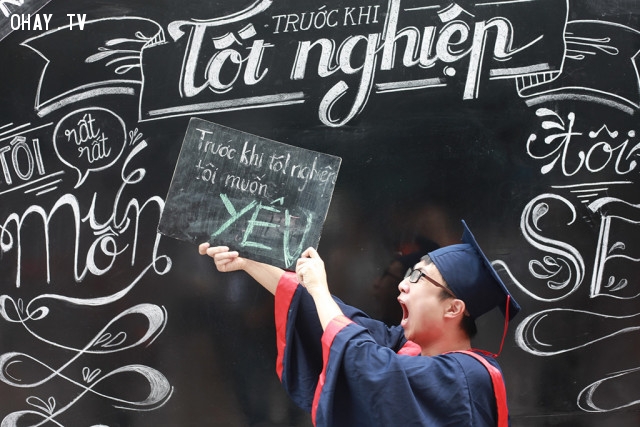 OHAY.TV
TRƯỚC KHI
Tốt nghiệp
TÔI
rất
rất
Muốn
tôi
SẼ
Trước khi tốt nghiệp
tôi muốn
YÊU